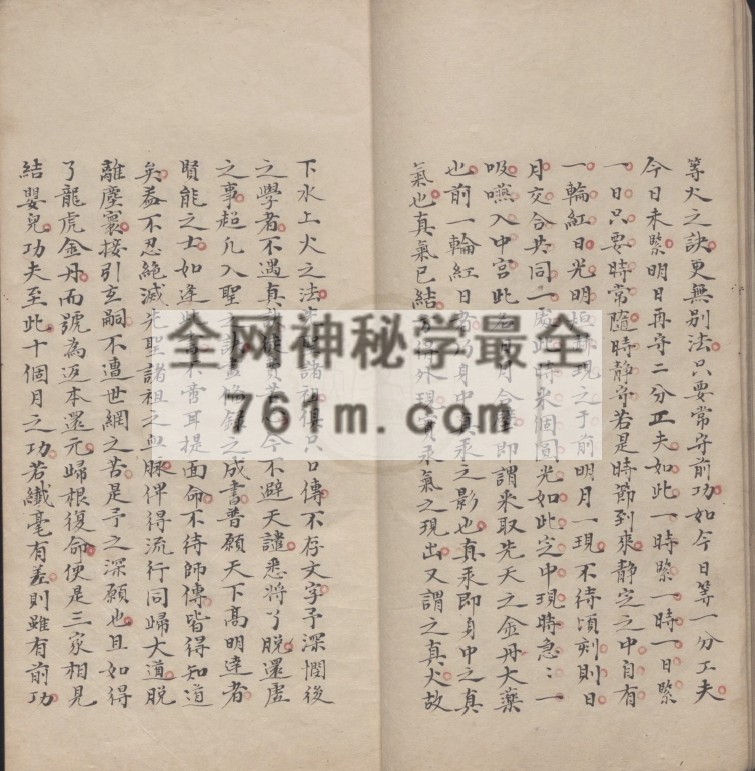 等火之訣更無別法只要常守前功如今日等一分工夫
今日未緊明日再守二分工夫如此一時緊一時一日緊
一日只要時常隨時靜守若是時節到來靜定之中自有
一輪紅日光明現之于前明月一現不待頃刻則日
月交合共同一處此時來個固光如此定中現時急：一
吸嚥入中宮此日月合即謂采取先天之金丹大藥
也前一輪紅日者身中真汞之影也真汞即身中之真
氣也真氣已結外現真汞氣之現出又謂之真火故
下水上火之法諸祖俱只口傳不存文字予深憫後
之學者不遇真今不避天譴悉將了脫還虛
之事超凡入聖之之成書普願天下高明達者
賢能之士如逢此書不啻耳提面命不待師傳皆得知道
矣葢不忍絕滅先聖諸祖之血脉俾得流行同歸大道脫
離塵寰接引玄嗣不遭世網之苦是予之深願也且如得
了龍虎金丹而號為返本還元歸根復命便是三家相見
結嬰兒功夫至此十個月之功若纖毫有差則雖有前功
全网神秘学最全
761m.com